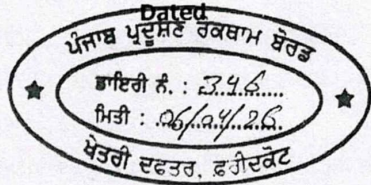 Dated
ਪੰਜਾਬ ਪ੍ਰਦੂਸ਼ਣ ਰੋਕਥਾਮ ਬੋਰਡ
ਡਾਇਰੀ ਨੰ. : 346
ਮਿਤੀ : 06/04/26
ਖੇਤਰੀ ਦਫਤਰ, ਫਰੀਦਕੋਟ